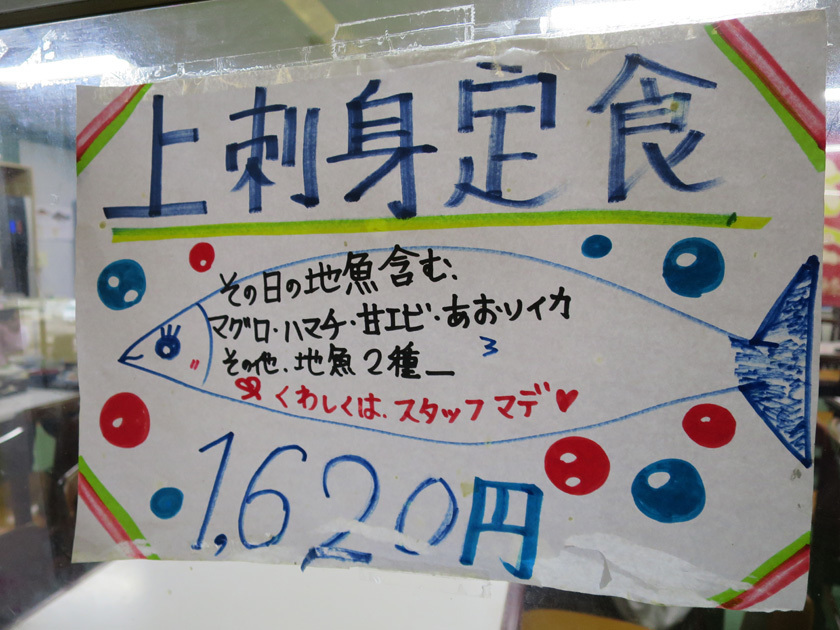 上刺身定食
その日の地魚含む、
マグロ・ハマチ・甘エビ・あおソイカ
3
その他、地魚2種
くわしくは、スタッフマデ♥
1,620円